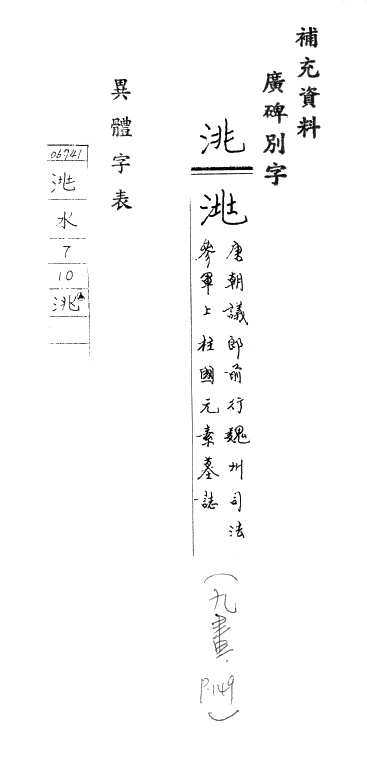 補充資料
廣碑別字
洮
唐朝議郎前行魏州司法
參軍上柱國元素墓誌
(九畫.P.149)
異體字表
06741
水
7
10
洮